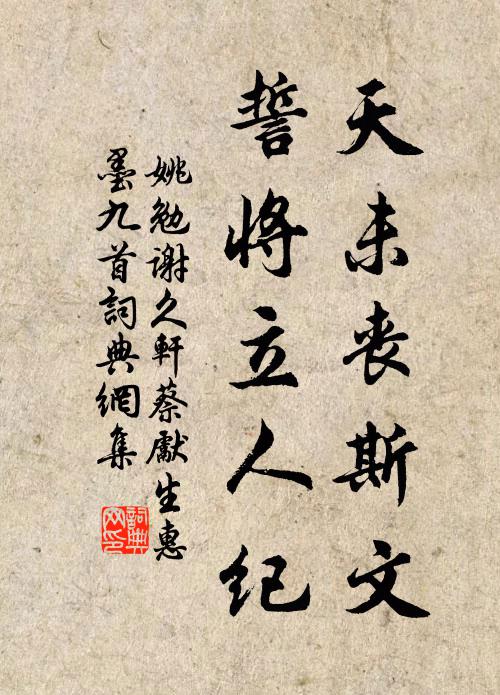 天未丧斯文
誓將立人纪
姚勉谢久軒蔡獻生惠
墨九首詞典網集
詞典网印